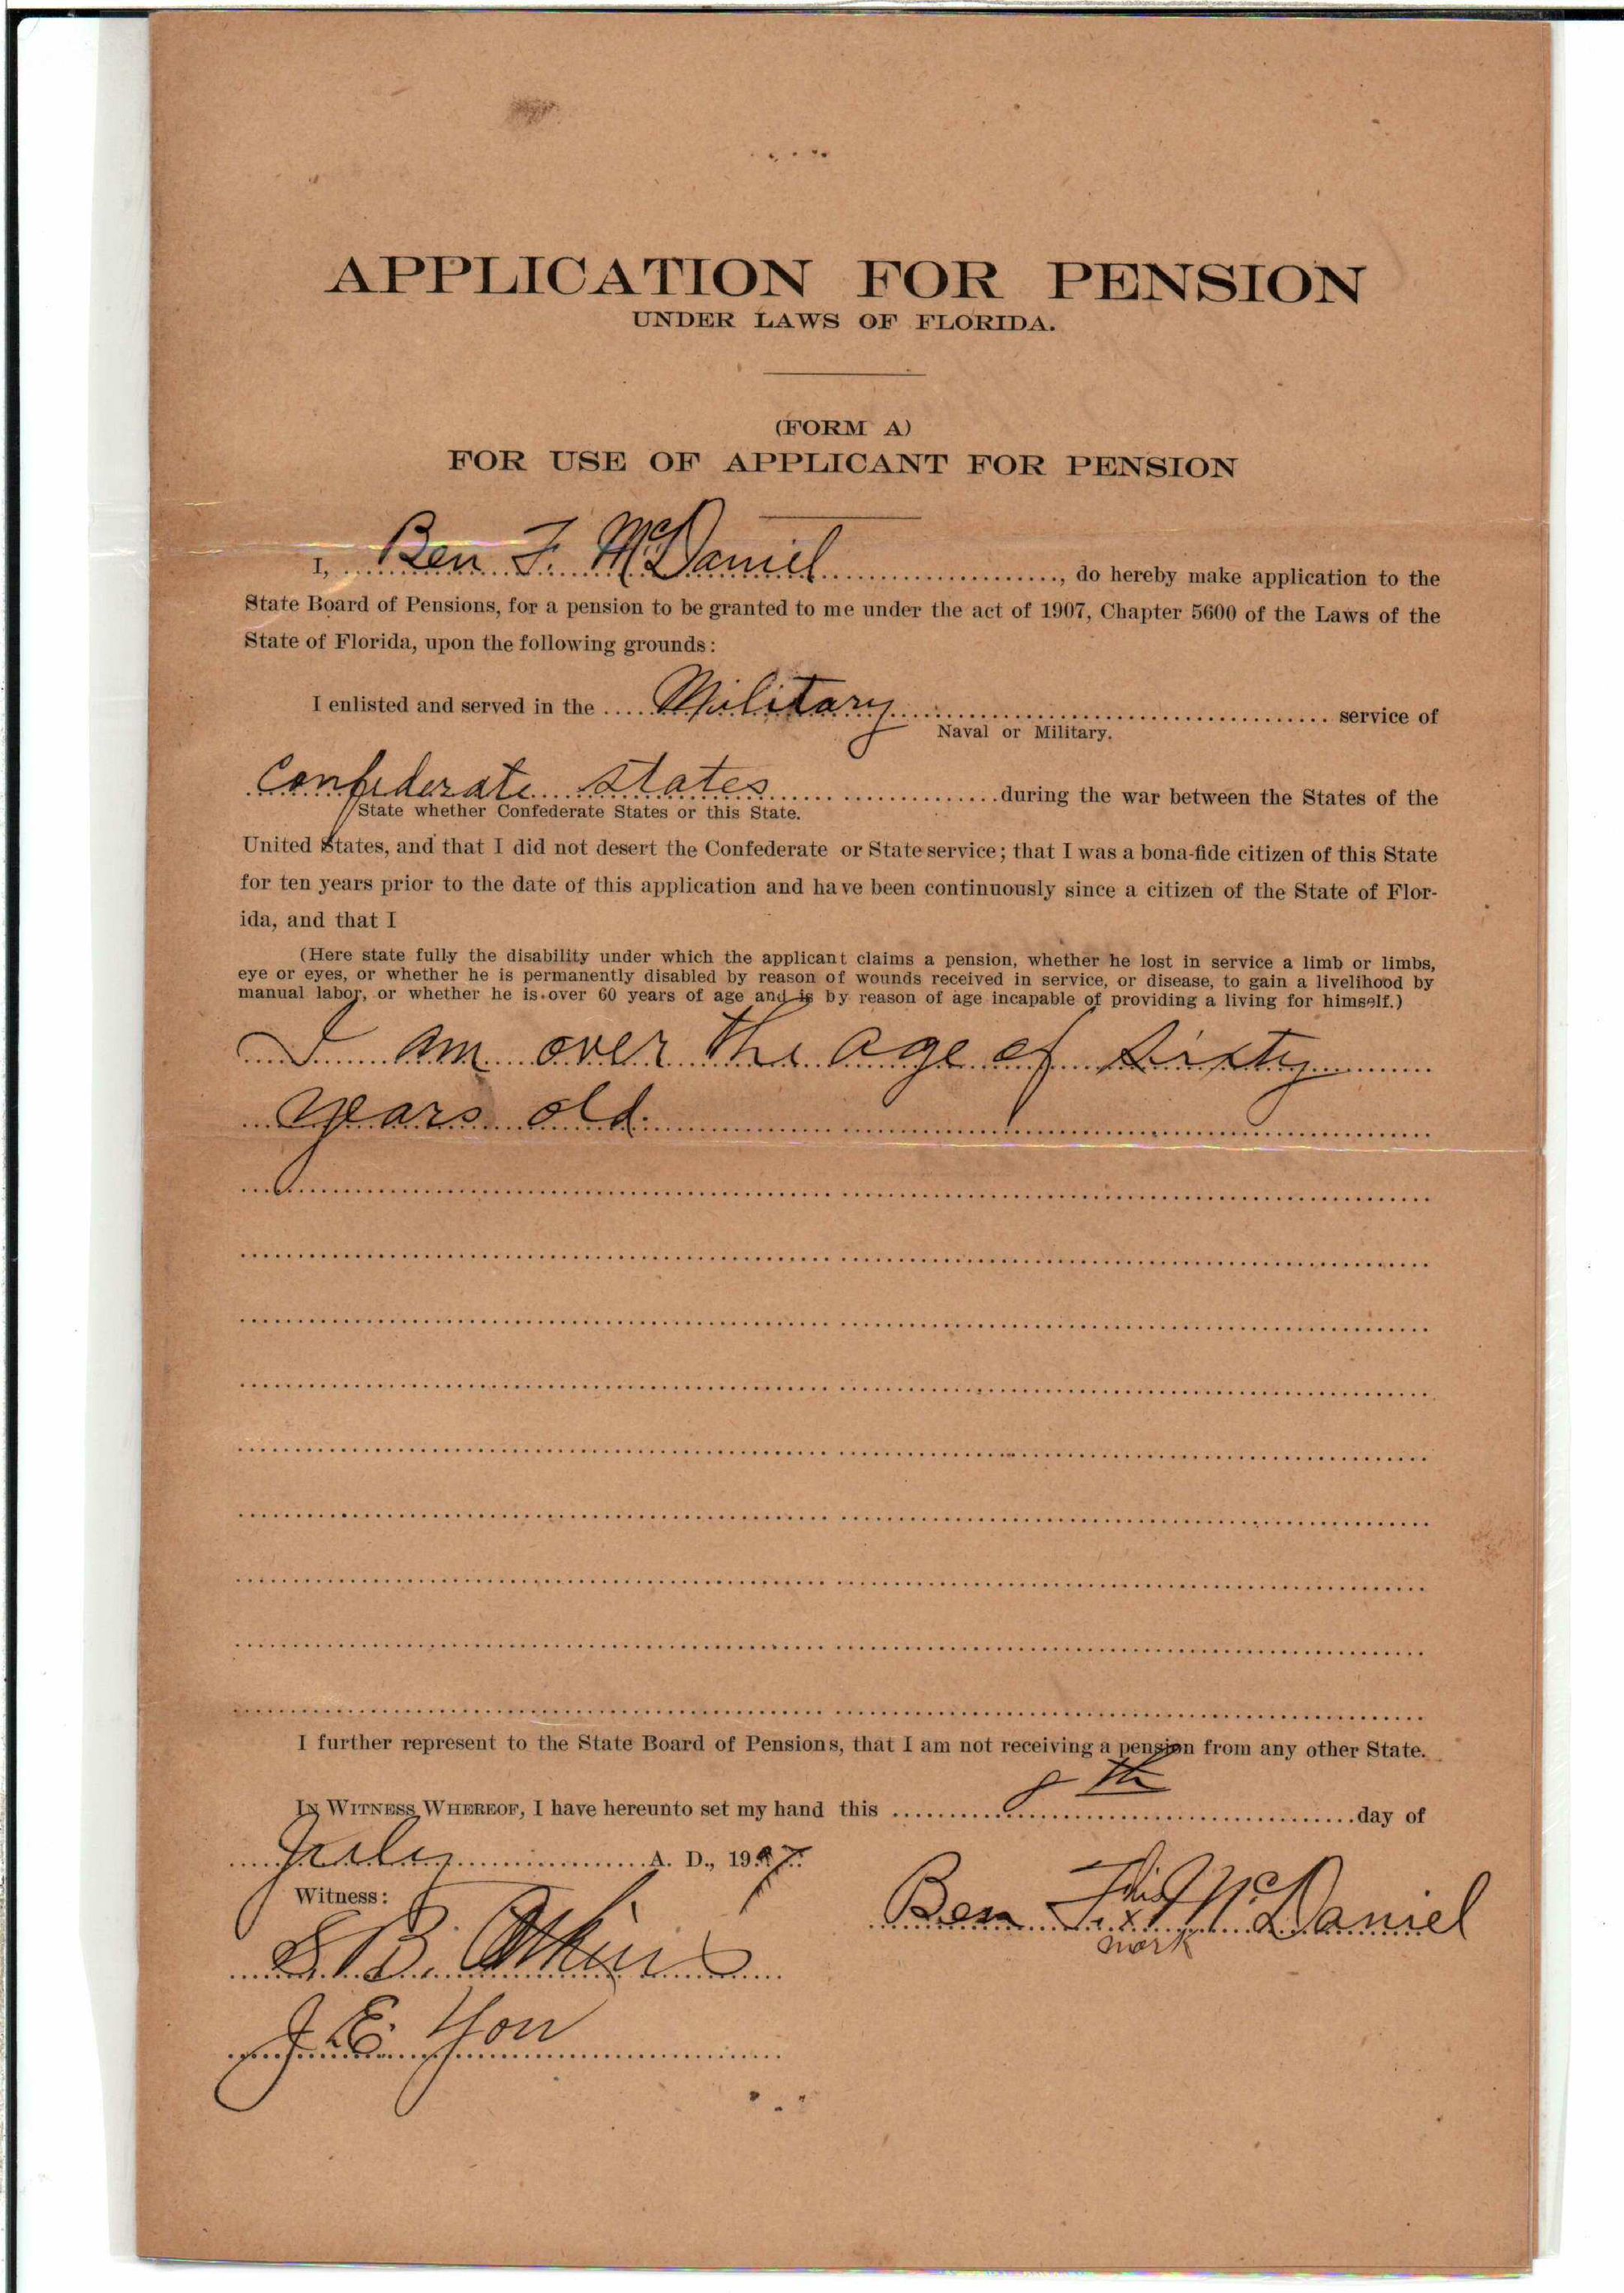 APPLICATION FOR PENSION
UNDER LAWS OF FLORIDA.
(FORM A)
FOR USE OF APPLICANT FOR PENSION
I, Ben F. McDaniel, do hereby make application to the
State Board of Pensions, for a pension to be granted to me under the act of 1907, Chapter 5600 of the Laws of the
State of Florida, upon the following grounds:
I enlisted and served in the Military service of
Naval or Military.
Confederate States during the war between the States of the
State whether Confederate States or this State.
United States, and that I did not desert the Confederate or State service; that I was a bona-fide citizen of this State
for ten years prior to the date of this application and have been continuously since a citizen of the State of Flor-
ida, and that I
(Here state fully the disability under which the applicant claims a pension, whether he lost in service a limb or limbs,
eye or eyes, or whether he is permanently disabled by reason of wounds received in service, or disease, to gain a livelihood by
manual labor, or whether he is over 60 years of age and is by reason of age incapable of providing a living for himself.)
I am over the age of sixty
years old.
I further represent to the State Board of Pensions, that I am not receiving a pension from any other State.
IN WITNESS WHEREOF, I have hereunto set my hand this th day of
July A. D., 1907.
Witness:
Ben F. his x mark McDaniel
S. B. Atkins
J. E. Yon